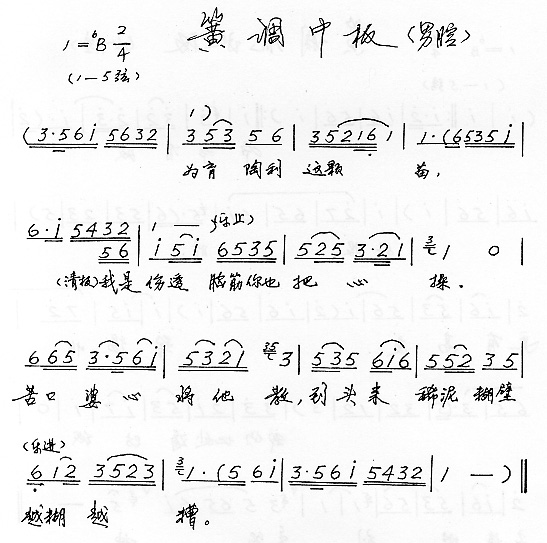 簧调中板(男腔)
1=♭B 2/4
(1—5弦)
1)
(3·56i 5632 | 353 56 | 35216 1 | 1·(6535i |
为育陶利这颗苗,
6·i 5432 | 1 — (乐止)
56 | i5i 6535 | 525 3·21 | 1 0 |
(清板)我是伤透脑筋你也把心操.
665 3·56i | 5321 35 3 | 535 6i6 | 552 35 |
苦口婆心将他教,到头来稀泥糊壁
(乐进)
6i2 3523 | 1·(5 6i | 3·56i 5432 | 1 —)‖
越糊越糟。